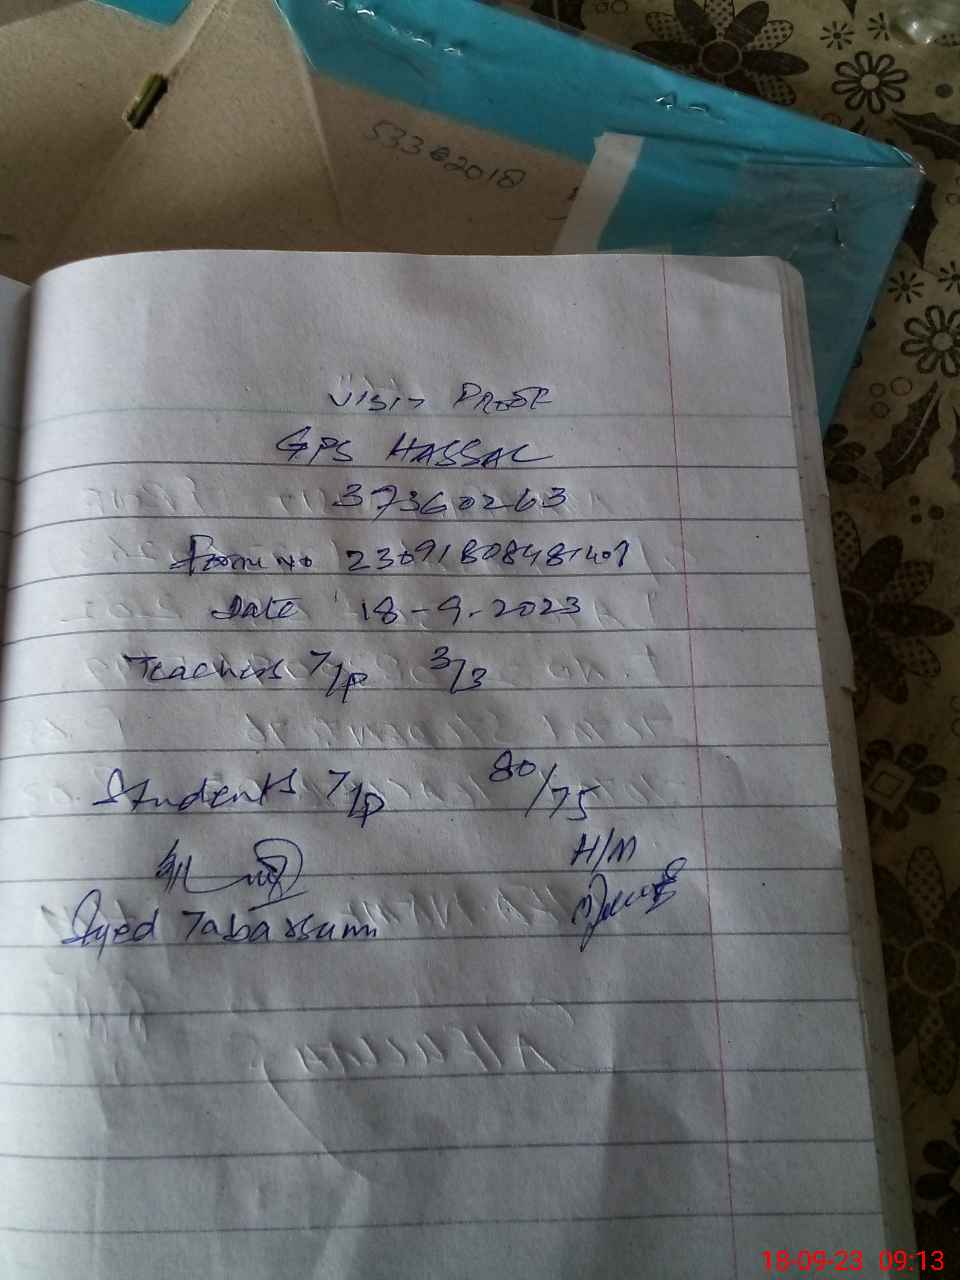 533@2018
Visit Proof
GPS HASSAL
37360263
Form No 23091808481409
Date 18-9-2023
Teachers T/P 3/3
Students T/P 80/75
H/M
Syed Tabassum
18-09-23 09:13